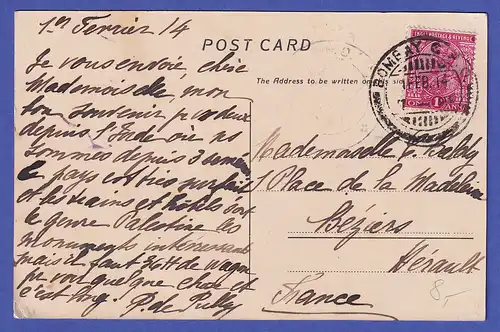 1er Fevrier 14
POST CARD
The Address to be written on this side
INDIA POSTAGE & REVENUE
BOMBAY
FEB. 14
ONE 1 ANNA
Je vous envoie, chère
Mademoiselle, mon
bon souvenir
depuis l'Inde où ns
sommes depuis 3 semaines
le pays est très
et les trains et hôtels
genre Palestine les
monuments intéressants
mais il faut 24 H de wagon
pr voir quelque chose et
c'est long! P. de
Mademoiselle
1 Place de la Madeleine
Béziers
Hérault
France
8,-